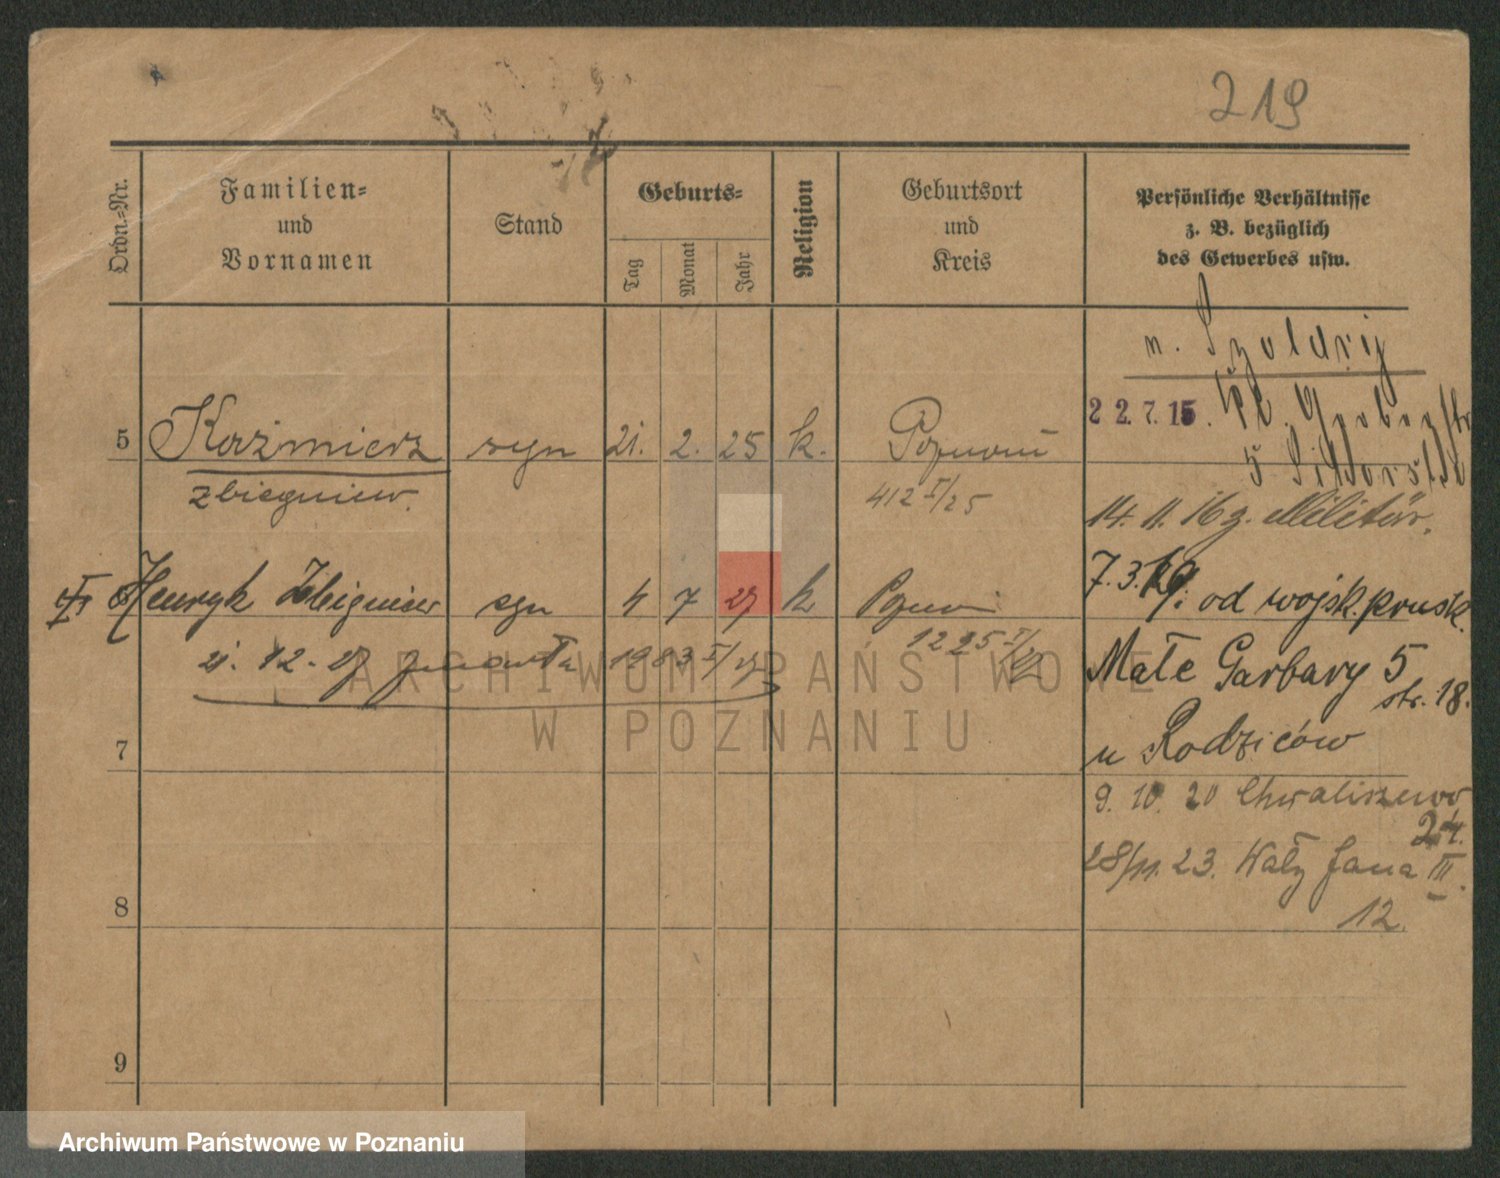 219
Ordn.-Nr.
Familien-
und
Vornamen
Stand
Geburts-
Tag
Monat
Jahr
Religion
Geburtsort
und
Kreis
Persönliche Verhältnisse
z. B. bezüglich
des Gewerbes usw.
n. Szoldrij
22.7.15.
5 Kaźmierz syn 21. 2. 25 k. Poznań
5
Zbiegniew. 412 I/25
14. 11. 16 z. Militär.
7.3.19. od wojsk. prusk.
Henryk Zbigniew syn 4 7 27 k
1225 I/27
21. 12. 27 1983 I/27
Małe Garbary 5
str. 18.
7
u Rodziców
9. 10. 20 Chwaliszewo
24.
28/11. 23. Wały Jana III.
12.
8
9
ARCHIWUM PAŃSTWOWE
W POZNANIU
Archiwum Państwowe w Poznaniu